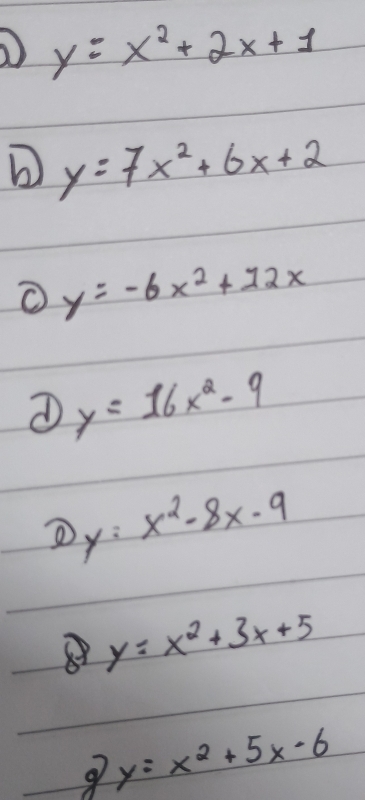 a) y = x² + 2x + 1
b) y = 7x² + 6x + 2
c) y = -6x² + 12x
d) y = 16x² - 9
e) y = x² - 8x - 9
f) y = x² + 3x + 5
g) y = x² + 5x - 6